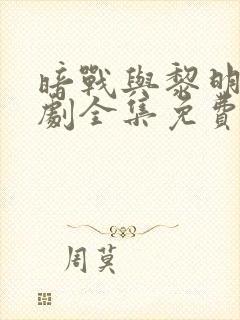 暗戰與黎明
劇全集免費
周莫